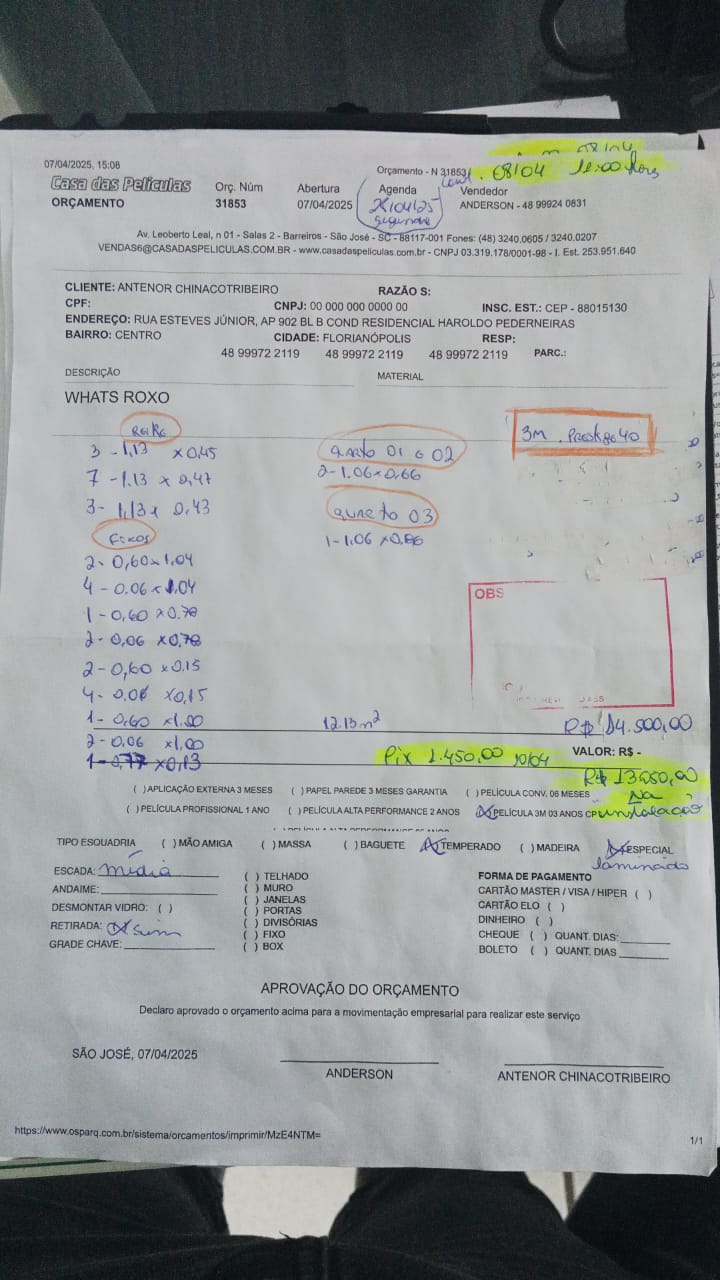 07/04/2025, 15:08
Orçamento - N 31853
08/04
Casa das Películas
ORÇAMENTO
Orç. Núm
31853
Abertura
07/04/2025
Agenda
28/04/25
segunda
Vendedor
ANDERSON - 48 99924 0831
Av. Leoberto Leal, n 01 - Salas 2 - Barreiros - São José - SC - 88117-001 Fones: (48) 3240.0605 / 3240.0207
VENDAS6@CASADASPELICULAS.COM.BR - www.casadaspeliculas.com.br - CNPJ 03.319.178/0001-98 - I. Est. 253.951.640
CLIENTE: ANTENOR CHINACOTRIBEIRO RAZÃO S:
CPF: CNPJ: 00 000 000 0000 00 INSC. EST.: CEP - 88015130
ENDEREÇO: RUA ESTEVES JÚNIOR, AP 902 BL B COND RESIDENCIAL HAROLDO PEDERNEIRAS
BAIRRO: CENTRO CIDADE: FLORIANÓPOLIS RESP:
48 99972 2119 48 99972 2119 48 99972 2119 PARC.:
DESCRIÇÃO MATERIAL
WHATS ROXO
3M
40
3 - 1,13 x 0,45
quarto 01 e 02
7 - 1.13 x 0,47
2 - 1.06 x 0,66
3 - 1,13 x 0,43
quarto 03
Fixos
1 - 1.06 x 0,86
2 - 0,60 x 1.04
4 - 0.06 x 1.04
1 - 0,60 x 0.78
2 - 0,06 x 0,78
2 - 0,60 x 0.15
4 - 0,06 x 0,15
1 - 0,60 x 1.00
2 - 0.06 x 1,00
1 - 0,77 x 0,13
OBS
12.13 m²
R$ 14.500,00
Pix 1.450,00 10/04
VALOR: R$ -
R$ 13.050,00
Na
instalação
( ) APLICAÇÃO EXTERNA 3 MESES ( ) PAPEL PAREDE 3 MESES GARANTIA ( ) PELÍCULA CONV. 06 MESES
( ) PELÍCULA PROFISSIONAL 1 ANO ( ) PELÍCULA ALTA PERFORMANCE 2 ANOS (X) PELÍCULA 3M 03 ANOS
TIPO ESQUADRIA ( ) MÃO AMIGA ( ) MASSA ( ) BAGUETE (X) TEMPERADO ( ) MADEIRA (X) ESPECIAL
laminado
ESCADA: média
ANDAIME:
DESMONTAR VIDRO: ( )
RETIRADA: (X) sim
GRADE CHAVE:
( ) TELHADO
( ) MURO
( ) JANELAS
( ) PORTAS
( ) DIVISÓRIAS
( ) FIXO
( ) BOX
FORMA DE PAGAMENTO
CARTÃO MASTER / VISA / HIPER ( )
CARTÃO ELO ( )
DINHEIRO ( )
CHEQUE ( ) QUANT. DIAS:
BOLETO ( ) QUANT. DIAS
APROVAÇÃO DO ORÇAMENTO
Declaro aprovado o orçamento acima para a movimentação empresarial para realizar este serviço
SÃO JOSÉ, 07/04/2025
ANDERSON
ANTENOR CHINACOTRIBEIRO
https://www.osparq.com.br/sistema/orcamentos/imprimir/MzE4NTM=
1/1